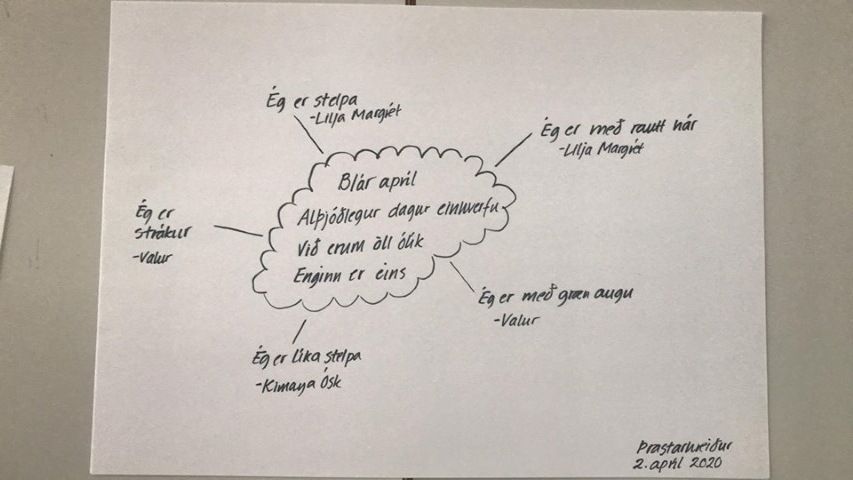 Ég er stelpa
-Lilja Margrét
Ég er með rautt hár
-Lilja Margrét
Blár apríl
Alþjóðlegur dagur einhverfu
Við erum öll ólík
Enginn er eins
Ég er
strákur
-Valur
Ég er með græn augu
-Valur
Ég er líka stelpa
-Kimaya Ósk
Þrastarhreiður
2. apríl 2020